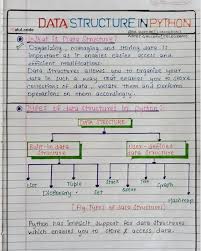 DATA STRUCTURE IN PYTHON
What is Data Structure?
Organizing, managing and storing data is
important as it enables easier access and
efficient modifications.
Data Structures allows you to organize your
data in such a way that enables you to store
collections of data, relate them and perform
operations on them accordingly.
Types of data structures in python:
DATA Structure
Built-in data
structure
User-defined
data structure
List
Dictionary
Tuple
Set
Stack
Queue
Tree
Linked list
Graph
Hashmap
[Fig: Types of data structures]
Python has implicit support for data structures
which enables you to store & access data.